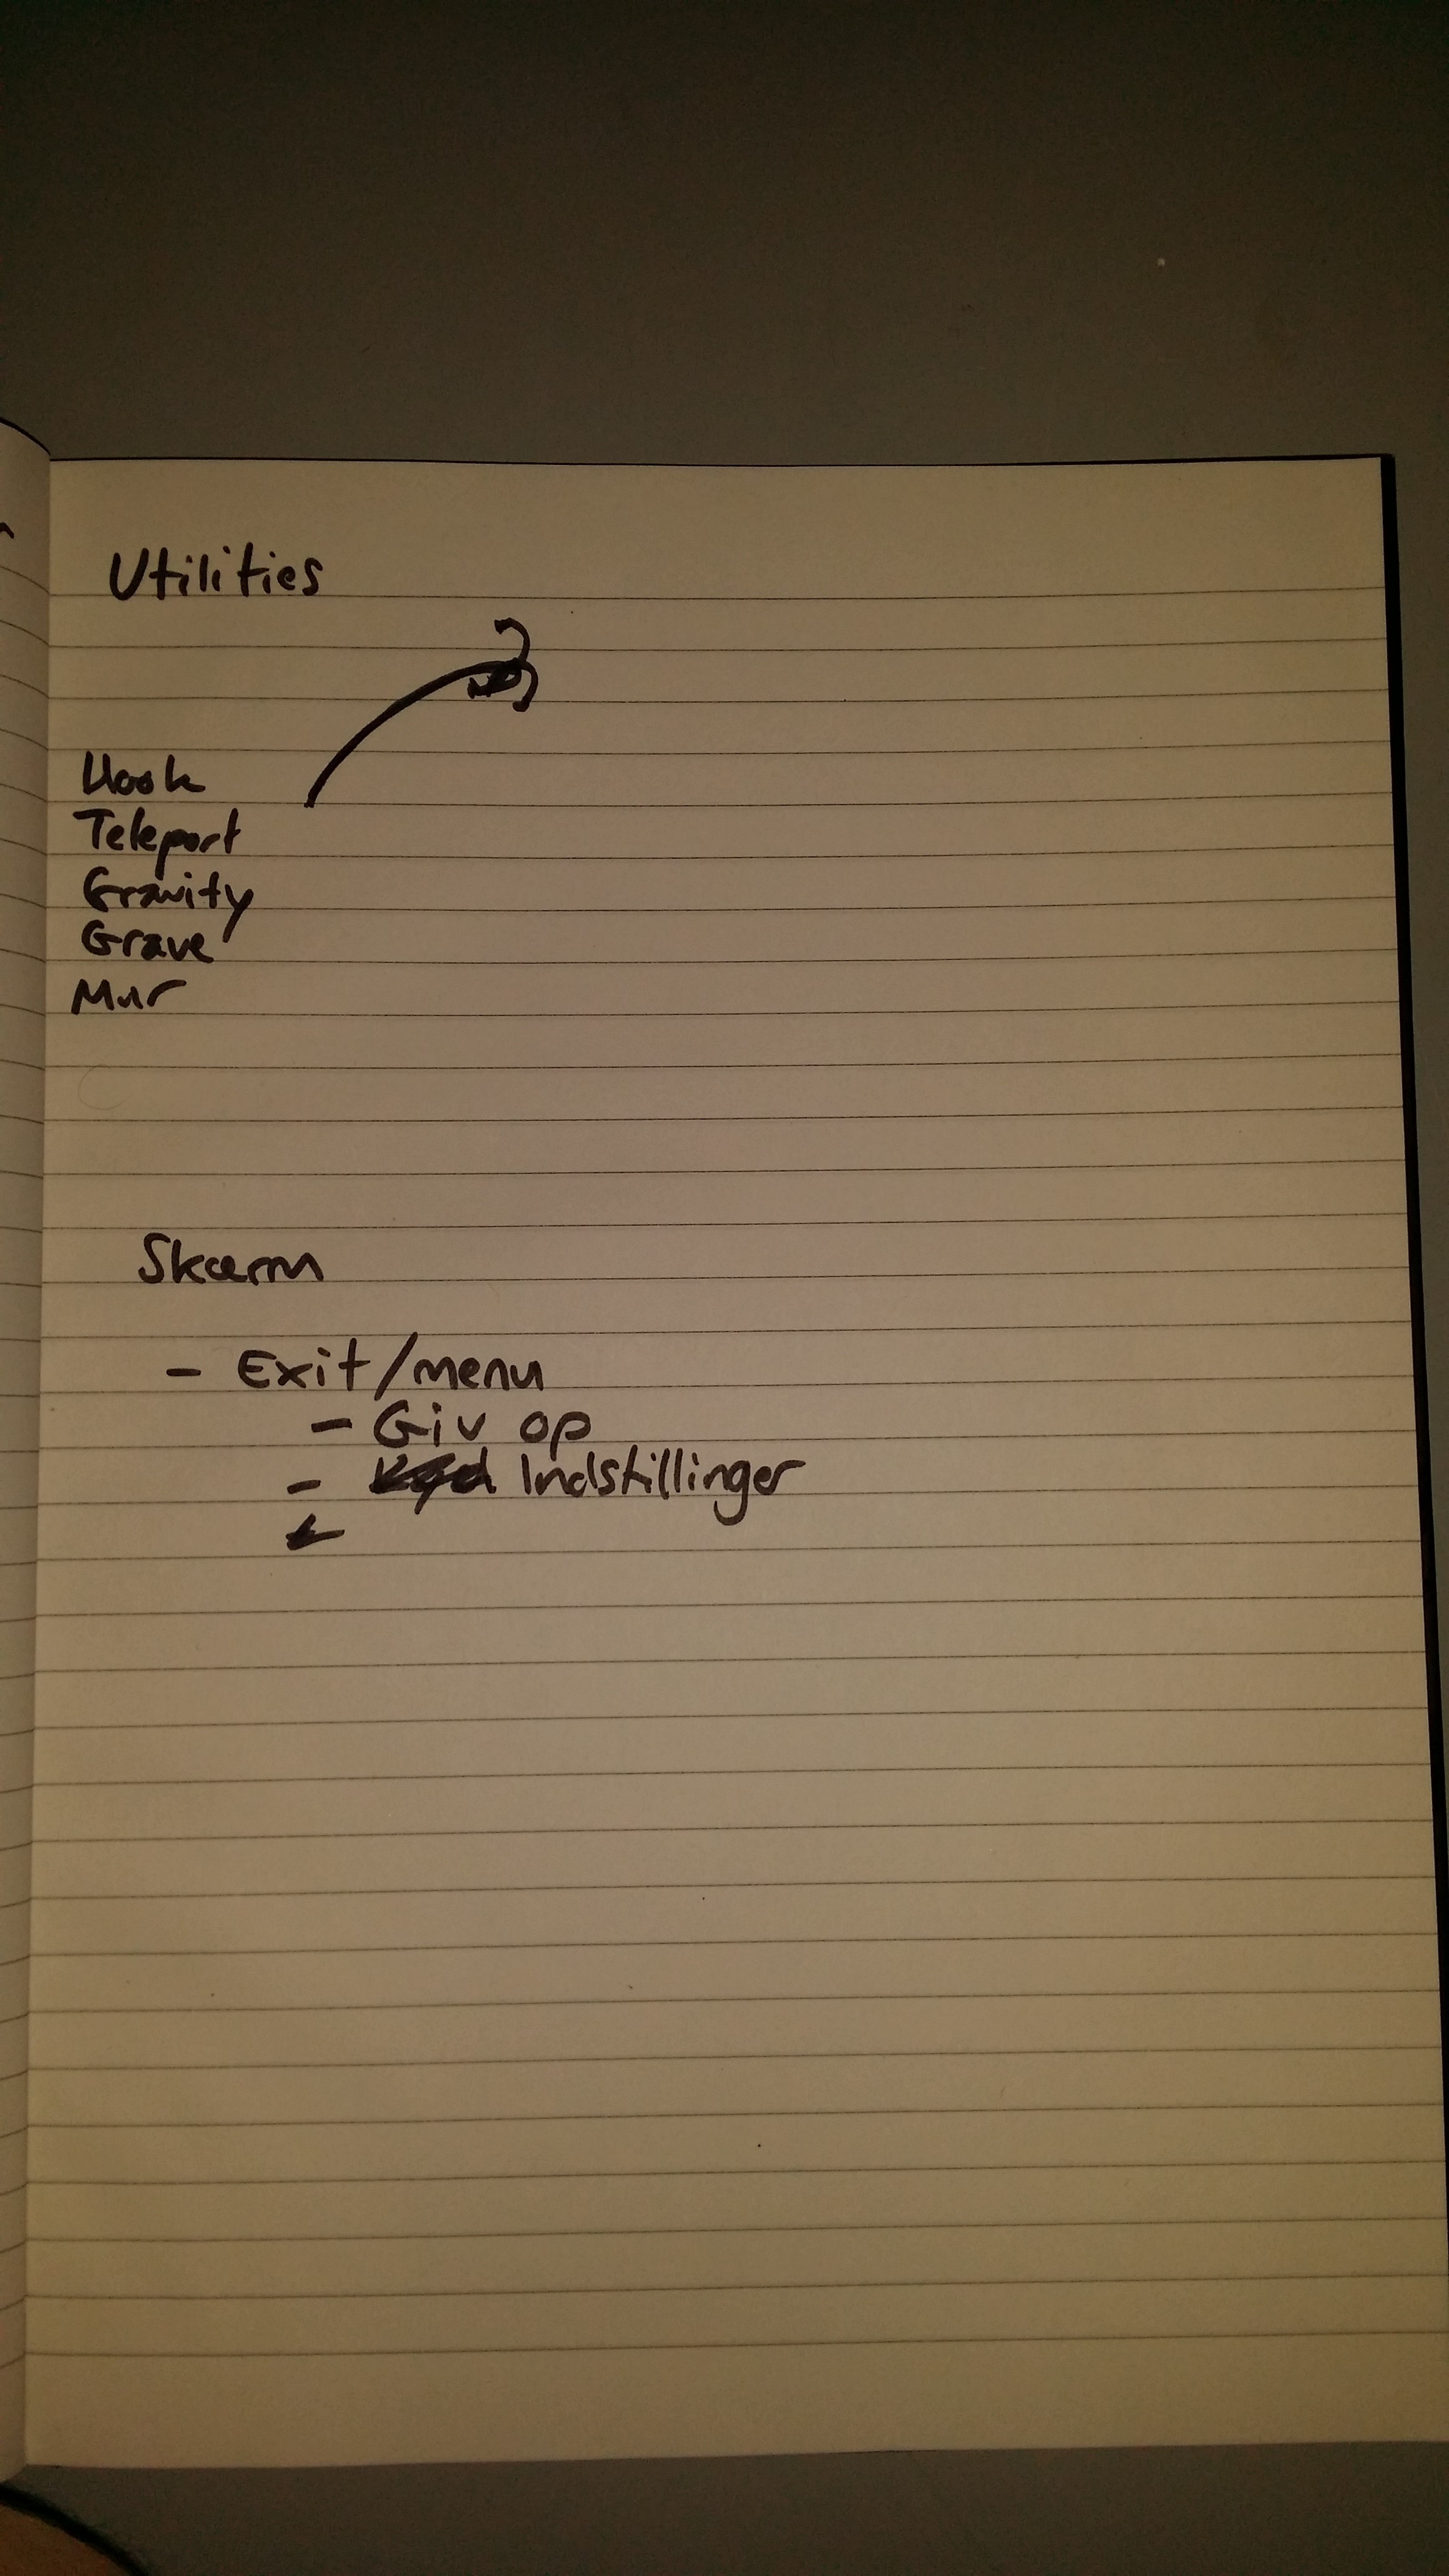 Utilities
Hook
Teleport
Gravity
Grave
Mur
Skærm
- Exit/menu
- Giv op
- Indstillinger
-